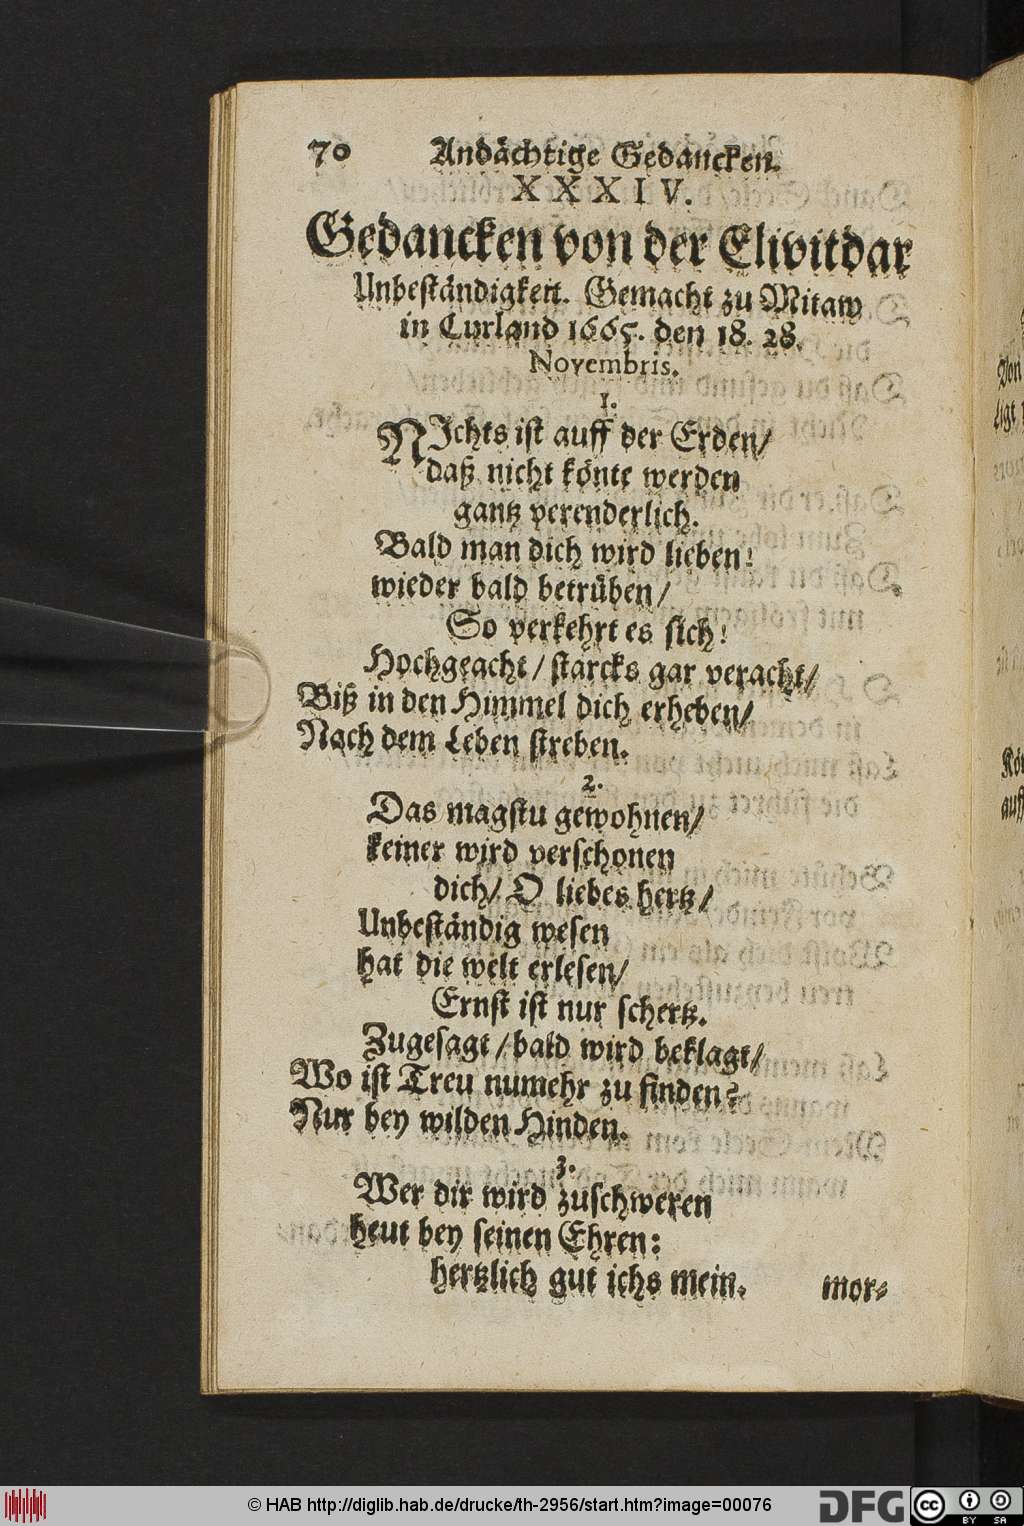 70 Andächtige Gedancken.
XXXIV.
Gedancken von der Elivitdar
Unbeständigkeit. Gemacht zu Mitaw
in Curland 1665. den 18. 28.
Novembris.
1.
NIchts ist auff der Erden/
daß nicht könte werden
gantz verenderlich.
Bald man dich wird lieben!
wieder bald betrüben/
So verkehrt es sich!
Hochgeacht/ starcks gar veracht/
Biß in den Himmel dich erheben/
Nach dem Leben streben.
2.
Das magstu gewohnen/
keiner wird verschonen
dich/ O liebes hertz/
Unbeständig wesen
hat die welt erlesen/
Ernst ist nur schertz.
Zugesagt/ bald wird beklagt/
Wo ist Treu numehr zu finden?
Nur bey wilden Hinden.
3.
Wer dir wird zuschweren
heut bey seinen Ehren:
hertzlich gut ichs mein.
mor-
© HAB http://diglib.hab.de/drucke/th-2956/start.htm?image=00076
DFG
cc
BY SA